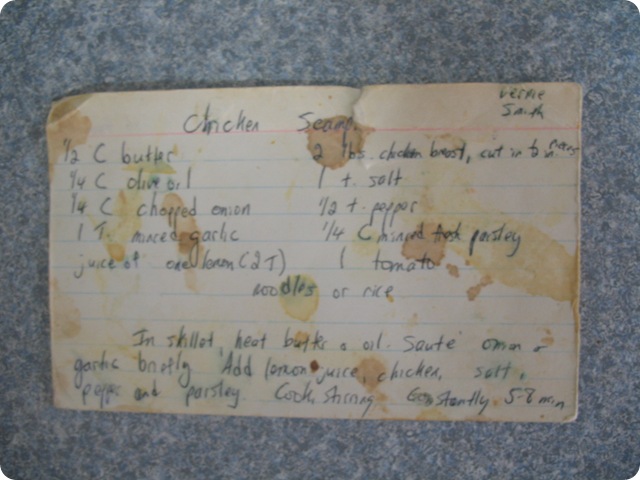 Smith
Chicken Scampi
1/2 C butter 2 lbs. chicken breast, cut in 1/2 in
1/4 C olive oil 1 t. salt
1/4 C chopped onion 1/2 t. pepper
1 T. minced garlic 1/4 C minced fresh parsley
juice of one lemon (2 T) 1 tomato
noodles or rice
In skillet, heat butter & oil. Saute onion &
garlic briefly Add lemon juice, chicken, salt,
pepper and parsley Cook, stirring Constantly 5-8 min